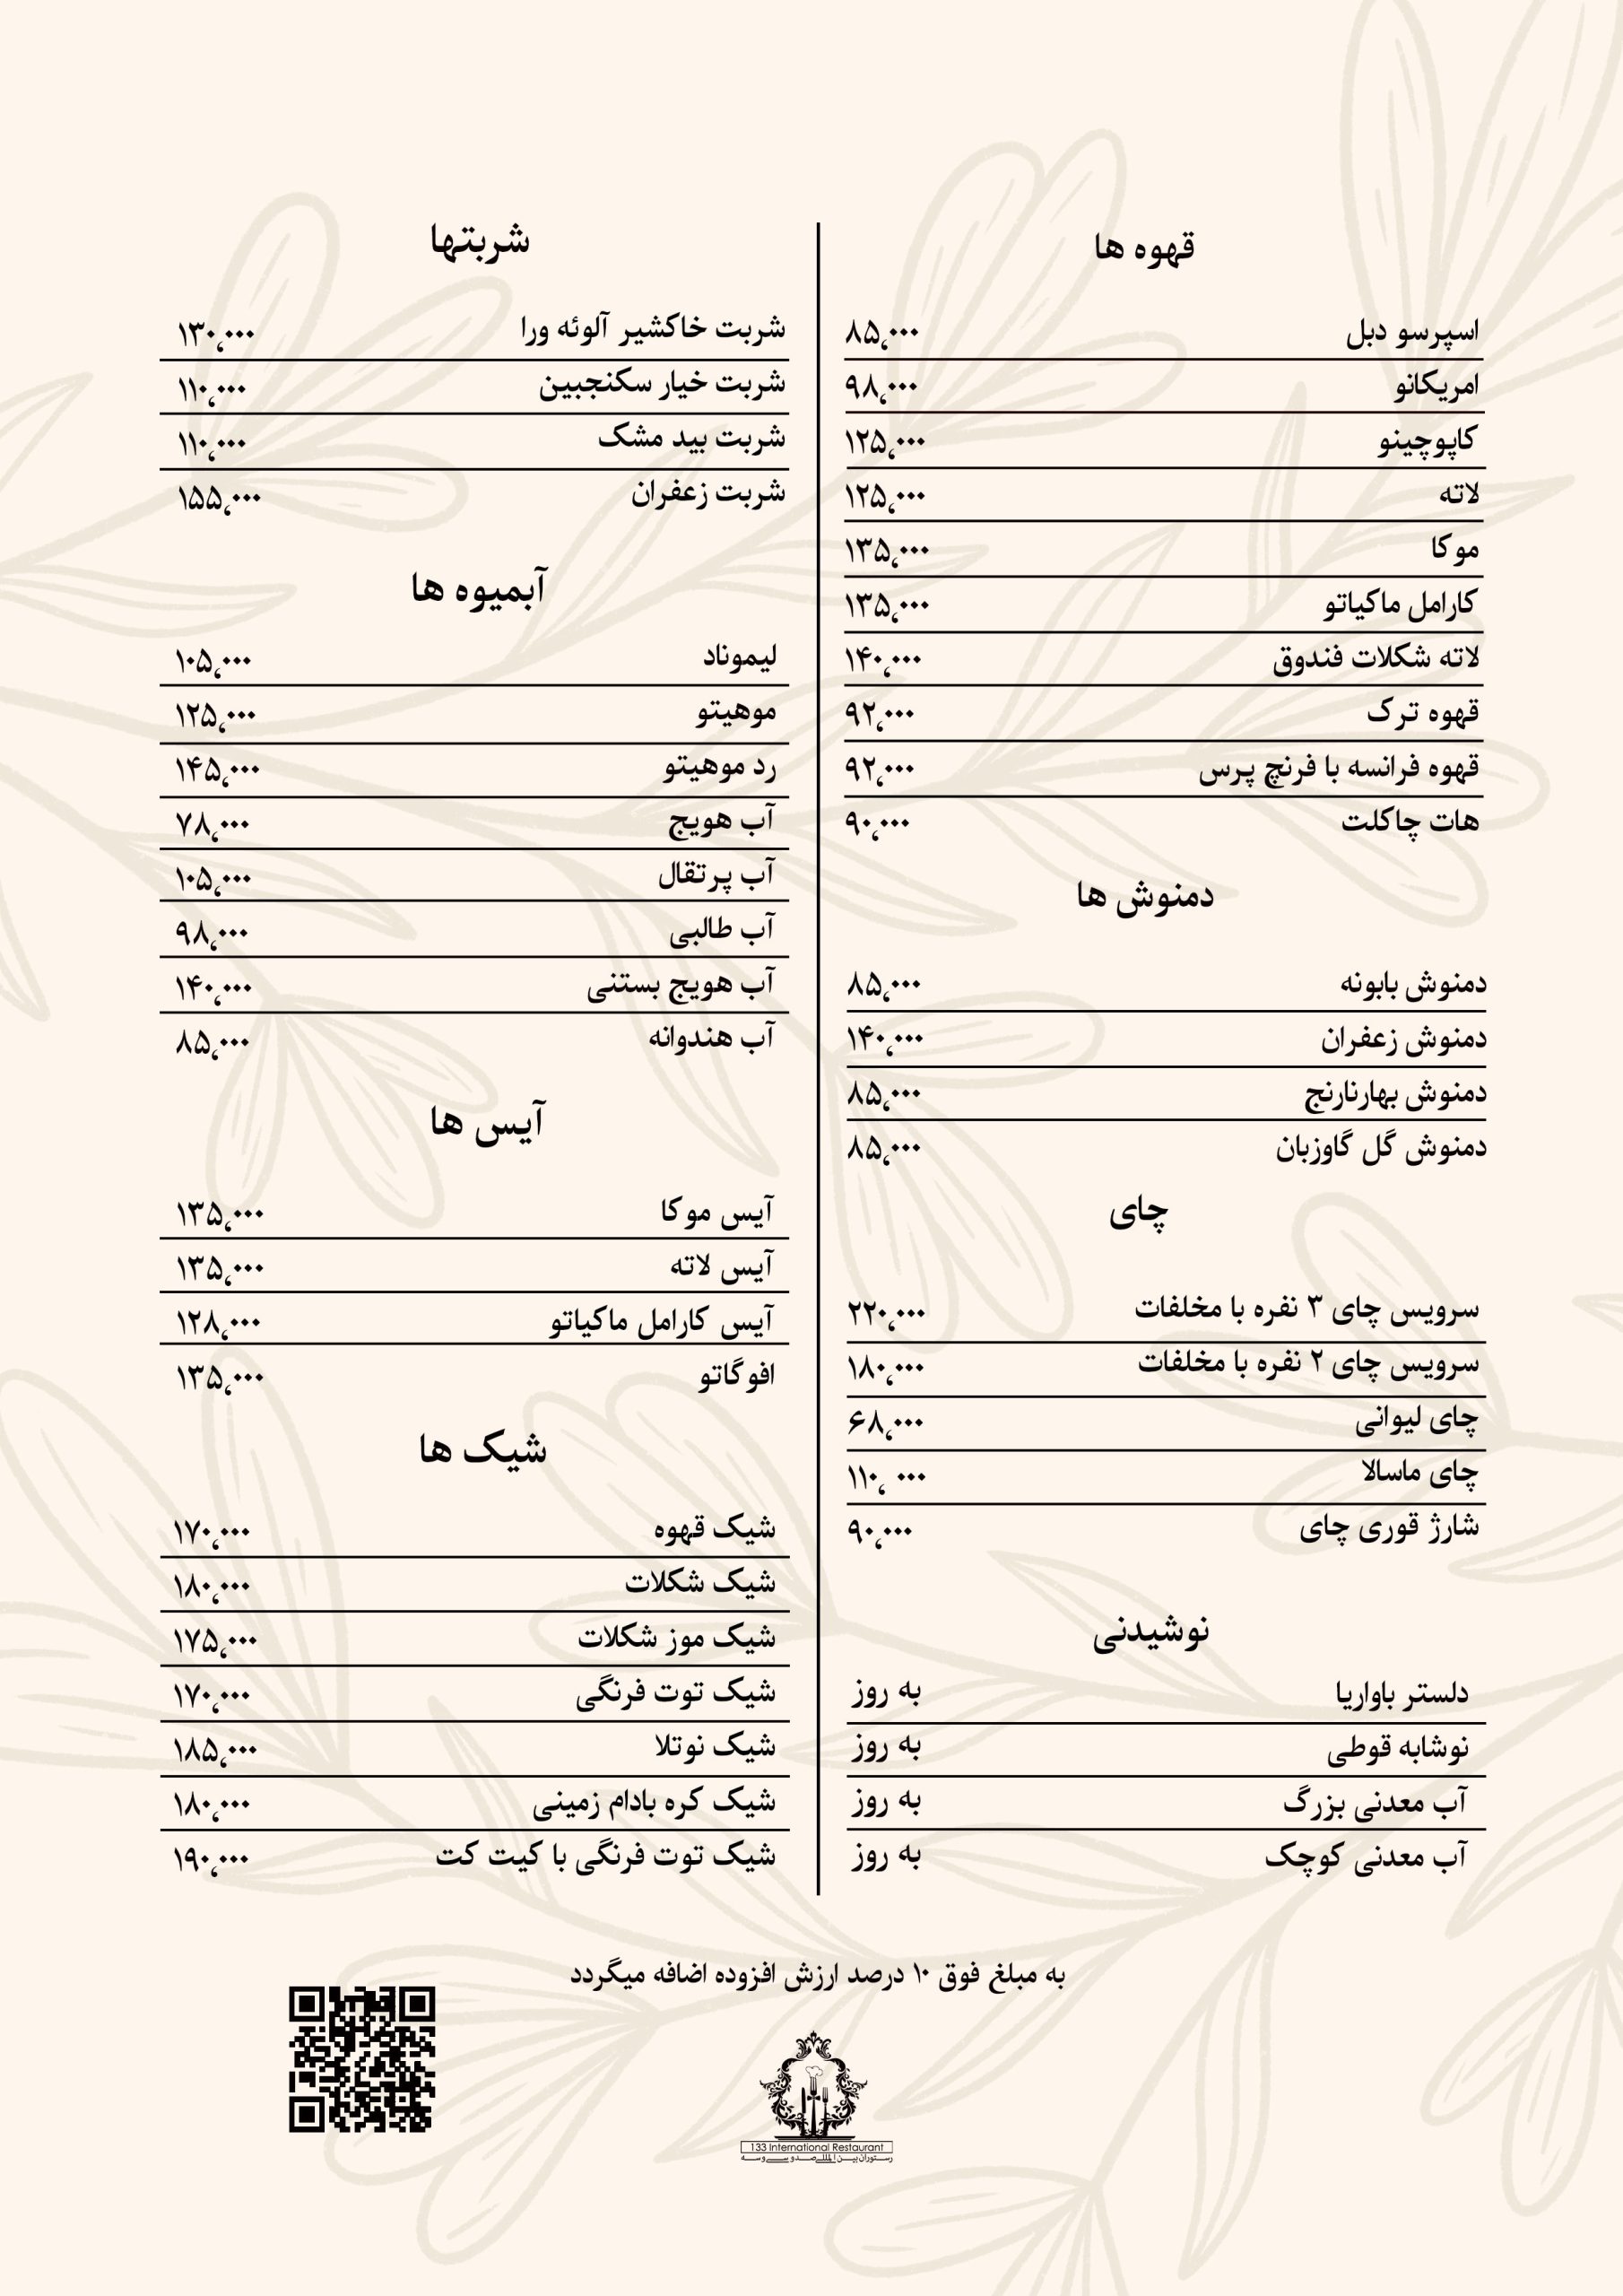 قهوه ها
اسپرسو دبل ۸۵,۰۰۰
امریکانو ۹۸,۰۰۰
کاپوچینو ۱۲۵,۰۰۰
لاته ۱۲۵,۰۰۰
موکا ۱۳۵,۰۰۰
کارامل ماکیاتو ۱۳۵,۰۰۰
لاته شکلات فندوق ۱۴۰,۰۰۰
قهوه ترک ۹۲,۰۰۰
قهوه فرانسه با فرنچ پرس ۹۲,۰۰۰
هات چاکلت ۹۰,۰۰۰
دمنوش ها
دمنوش بابونه ۸۵,۰۰۰
دمنوش زعفران ۱۴۰,۰۰۰
دمنوش بهارنارنج ۸۵,۰۰۰
دمنوش گل گاوزبان ۸۵,۰۰۰
چای
سرویس چای ۳ نفره با مخلفات ۲۲۰,۰۰۰
سرویس چای ۲ نفره با مخلفات ۱۸۰,۰۰۰
چای لیوانی ۶۸,۰۰۰
چای ماسالا ۱۱۰, ۰۰۰
شارژ قوری چای ۹۰,۰۰۰
نوشیدنی
دلستر باواریا به روز
نوشابه قوطی به روز
آب معدنی بزرگ به روز
آب معدنی کوچک به روز
شربتها
شربت خاکشیر آلوئه ورا ۱۳۰,۰۰۰
شربت خیار سکنجبین ۱۱۰,۰۰۰
شربت بید مشک ۱۱۰,۰۰۰
شربت زعفران ۱۵۵,۰۰۰
آبمیوه ها
لیموناد ۱۰۵,۰۰۰
موهیتو ۱۲۵,۰۰۰
رد موهیتو ۱۴۵,۰۰۰
آب هویج ۷۸,۰۰۰
آب پرتقال ۱۰۵,۰۰۰
آب طالبی ۹۸,۰۰۰
آب هویج بستنی ۱۴۰,۰۰۰
آب هندوانه ۸۵,۰۰۰
آیس ها
آیس موکا ۱۳۵,۰۰۰
آیس لاته ۱۳۵,۰۰۰
آیس کارامل ماکیاتو ۱۲۸,۰۰۰
افوگاتو ۱۳۵,۰۰۰
شیک ها
شیک قهوه ۱۷۰,۰۰۰
شیک شکلات ۱۸۰,۰۰۰
شیک موز شکلات ۱۷۵,۰۰۰
شیک توت فرنگی ۱۷۰,۰۰۰
شیک نوتلا ۱۸۵,۰۰۰
شیک کره بادام زمینی ۱۸۰,۰۰۰
شیک توت فرنگی با کیت کت ۱۹۰,۰۰۰
به مبلغ فوق ۱۰ درصد ارزش افزوده اضافه میگردد
133 International Restaurant
رستوران بین المللی صد و سی و سه